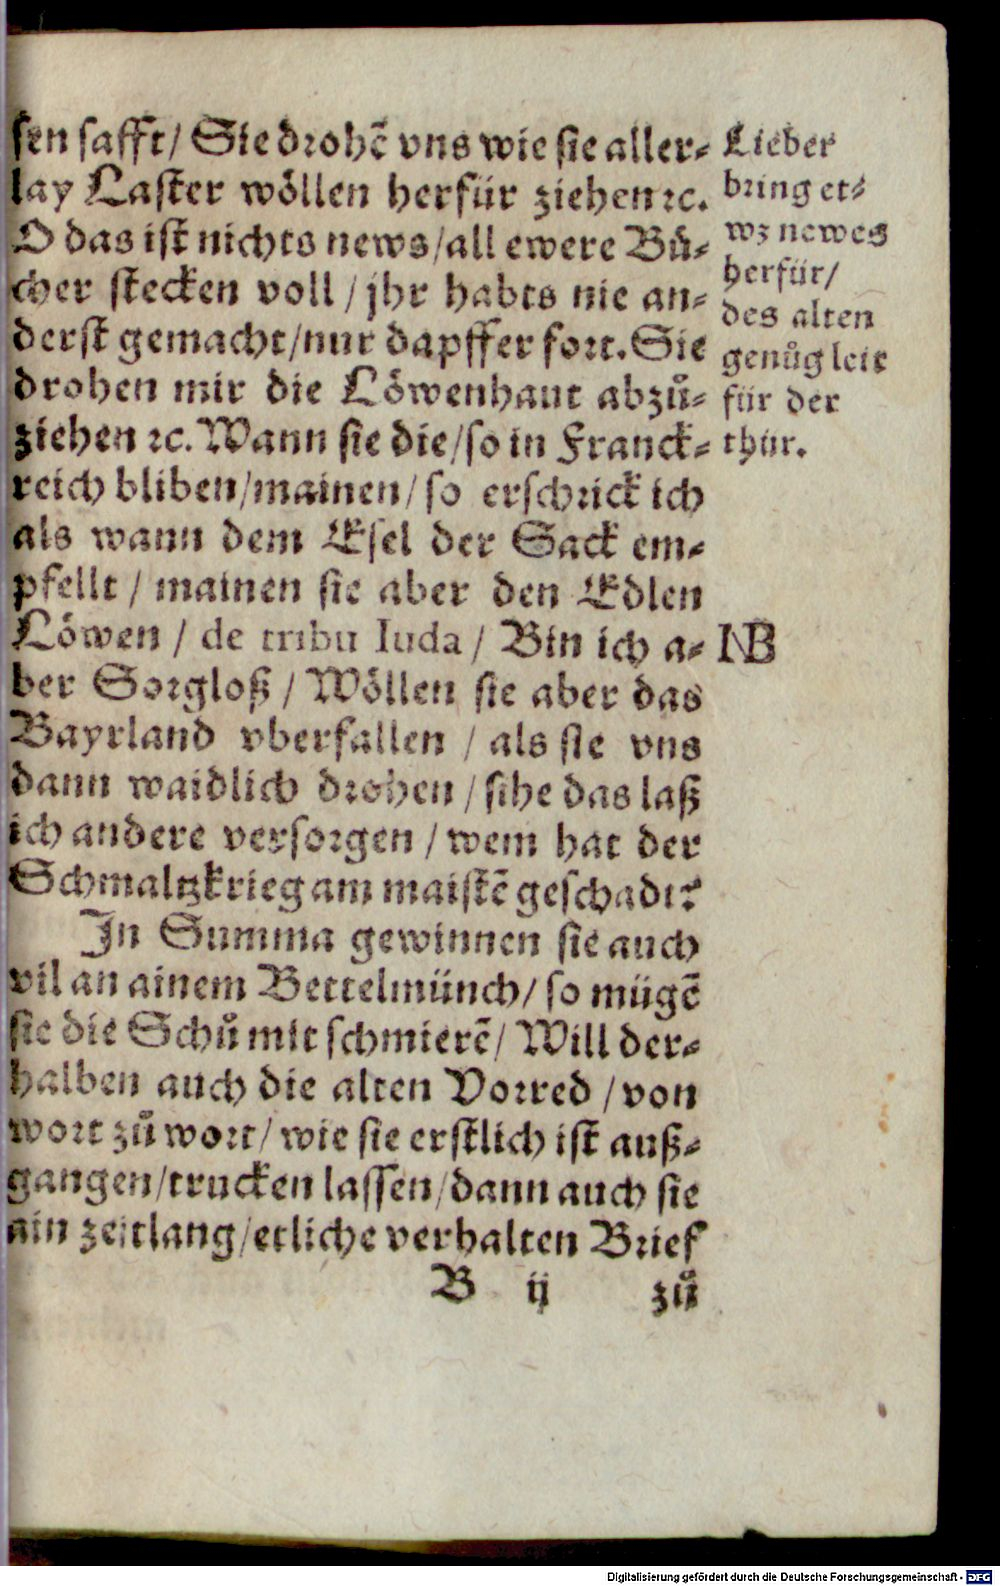 sen safft/ Sie drohē vns wie sie aller⸗
lay Laster wöllen herfür ziehen ꝛc.
O das ist nichts news/all ewere Bů⸗
cher stecken voll / jhr habts nie an⸗
derst gemacht/nur dapffer fort. Sie
drohen mir die Löwenhaut abzů⸗
ziehen ꝛc. Wann sie die/so in Franck⸗
reich bliben/mainen/ so erschrick ich
als wann dem Esel der Sack em⸗
pfellt / mainen sie aber den Edlen
Löwen / de tribu Iuda / Bin ich a⸗
ber Sorgloß / Wöllen sie aber das
Bayrland vberfallen / als sie vns
dann waidlich drohen / sihe das laß
ich andere versorgen / wem hat der
Schmaltzkrieg am maistē geschadt?
In Summa gewinnen sie auch
vil an ainem Bettelmünch/ so mügē
sie die Schů mit schmierē/ Will der⸗
halben auch die alten Vorred / von
wort zů wort/ wie sie erstlich ist auß⸗
gangen/trucken lassen/dann auch sie
ain zeitlang/etliche verhalten Brief
B ij zů
Lieber
bring et⸗
wz newes
herfür/
des alten
genůg leit
für der
thür.
NB
Digitalisierung gefördert durch die Deutsche Forschungsgemeinschaft - DFG